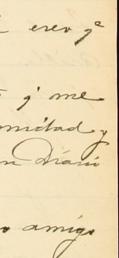 creo qe
q' me
midad y
on Diario
o amigo